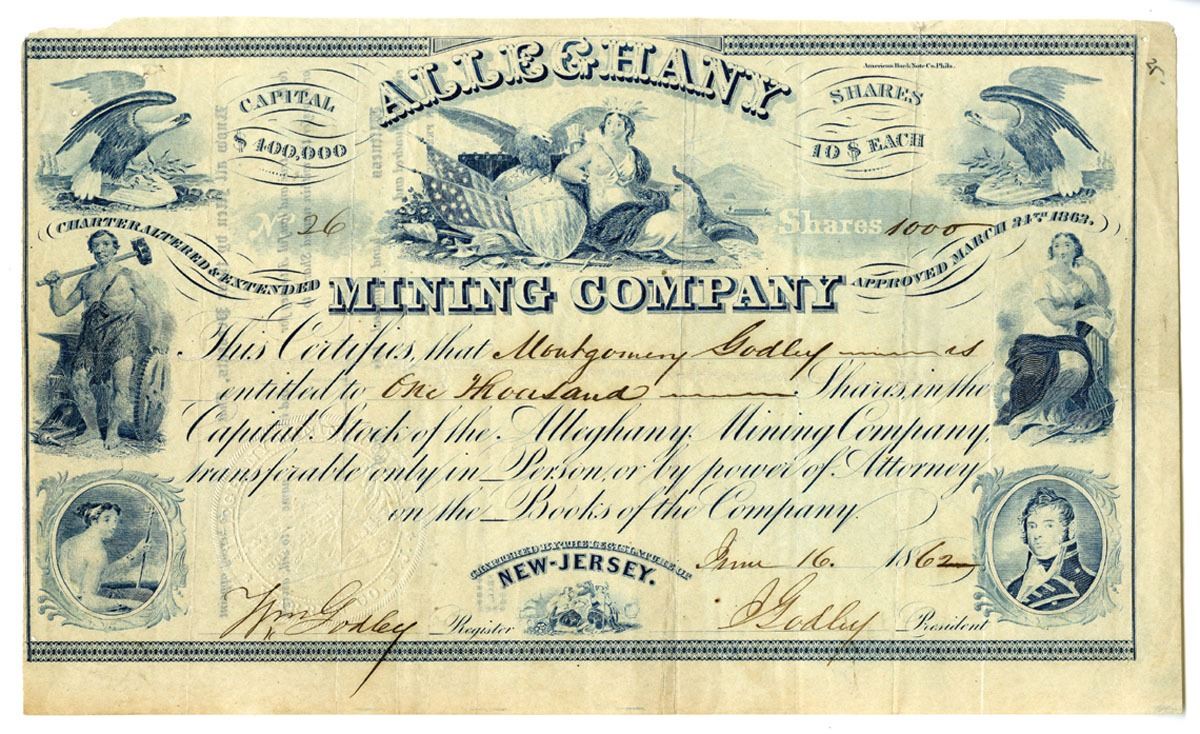 ALLEGHANY
American Bank Note Co. Phila.
25
CAPITAL
$ 400,000
SHARES
10 $ EACH
No. 26
Shares 1000
CHARTER ALTERED & EXTENDED
APPROVED MARCH 24TH 1862.
MINING COMPANY
This Certifies, that Montgomery Godley is
entitled to One Thousand Shares, in the
Capital Stock of the Alleghany Mining Company,
transferable only in Person, or by power of Attorney
on the Books of the Company.
CHARTERED BY THE LEGISLATURE OF
NEW-JERSEY.
June 16. 1862
Wm Godley Register
J Godley President